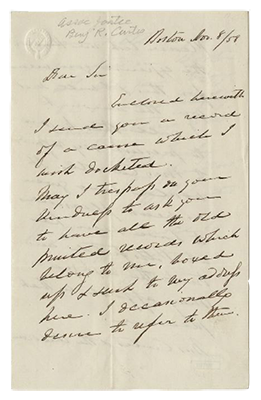 assoc justice
Benj R. Curtis
Boston Nov. 8/58
Dear Sir
Enclosed herewith
I send you a record
of a cause which I
wish docketed.
May I trespass on your
kindness to ask you
to have all the old
printed records which
belong to me, boxed
up & sent to my address
here. I occasionally
desire to refer to them.